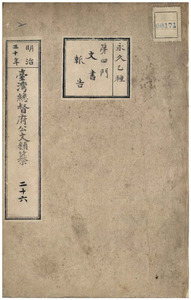 永久乙種
第四門
文書
報告
明治三十年
臺灣總督府公文類纂
二十六